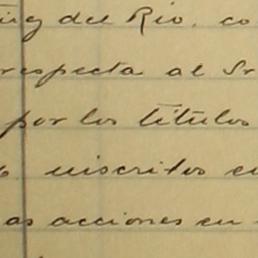 del Rio, co
respecta al Sr
por los títulos
inscritos en
as acciones en